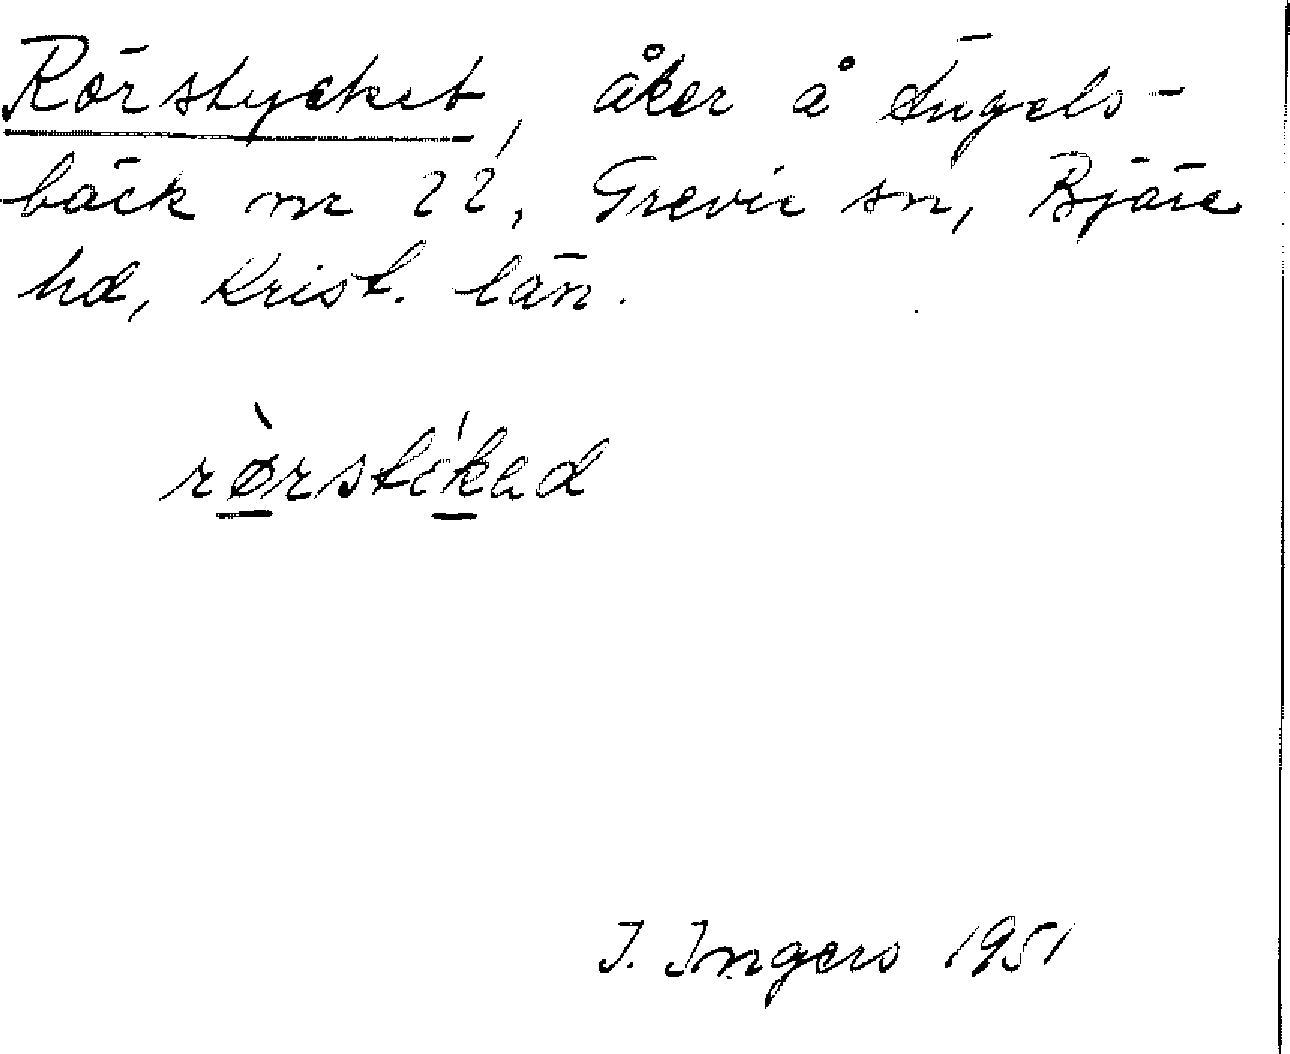 Rörstycket, åker å Ängels-
bäck nr 22, Grevie sn, Bjäre
hd, Krist. län.
rø̀rstíkad
I. Ingers 1951